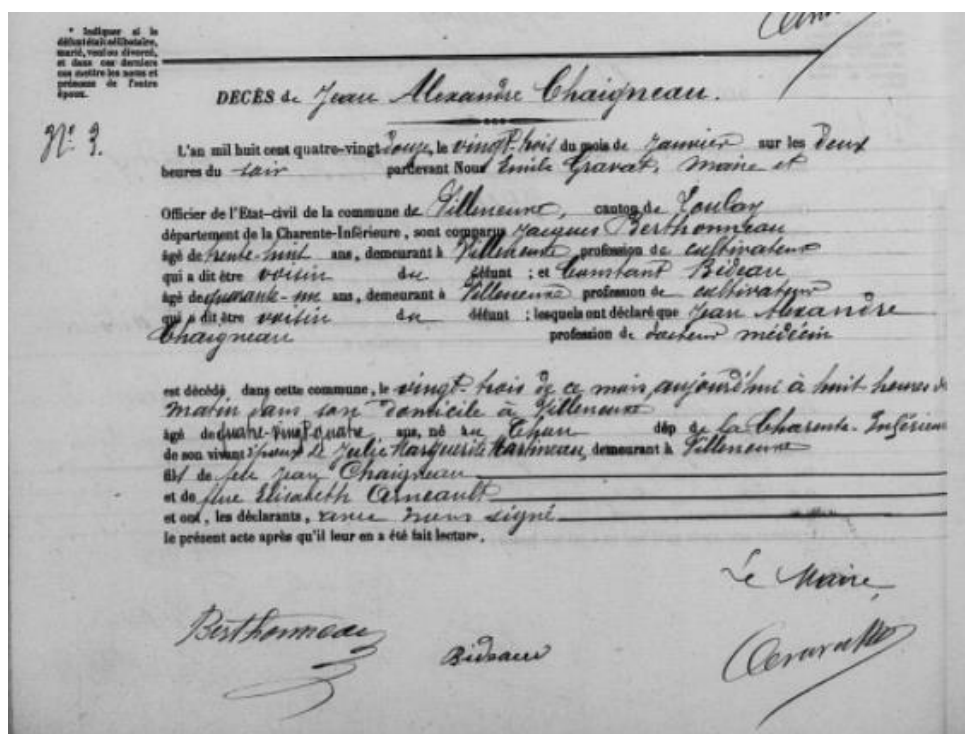 * Indiquer si le
défunt était célibataire,
marié, veuf ou divorcé,
et dans ces derniers
cas mettre les noms et
prénoms de l'autre
époux.
DECÈS de Jean Alexandre Chaigneau.
N° 3.
L'an mil huit cent quatre-vingt douze, le vingt-trois du mois de Janvier sur les Deux
heures du soir pardevant Nous Emile Gravat, Maire et
Officier de l'Etat-civil de la commune de Villeneuve, canton de Loulay
département de la Charente-Inférieure, sont comparus Jacques Berthonneau
âgé de trente-huit ans, demeurant à Villeneuve profession de cultivateur
qui a dit être voisin du défunt ; et Constant Bideau
âgé de quarante-un ans, demeurant à Villeneuve profession de cultivateur
qui a dit être voisin du défunt : lesquels ont déclaré que Jean Alexandre
Chaigneau profession de docteur médecin
est décédé dans cette commune, le vingt-trois de ce mois, aujourd'hui à huit heures du
matin dans son domicile à Villeneuve
âgé de quatre-vingt quatre ans, né au dép de la Charente-Inférieure
de son vivant époux de Julie Marguerite Martineau, demeurant à Villeneuve
fils de feu Jean Chaigneau
et de feue Elisabeth Arneault
et ont, les déclarants, avec nous signé
le présent acte après qu'il leur en a été fait lecture.
Le Maire,
Berthonneau
Bideau